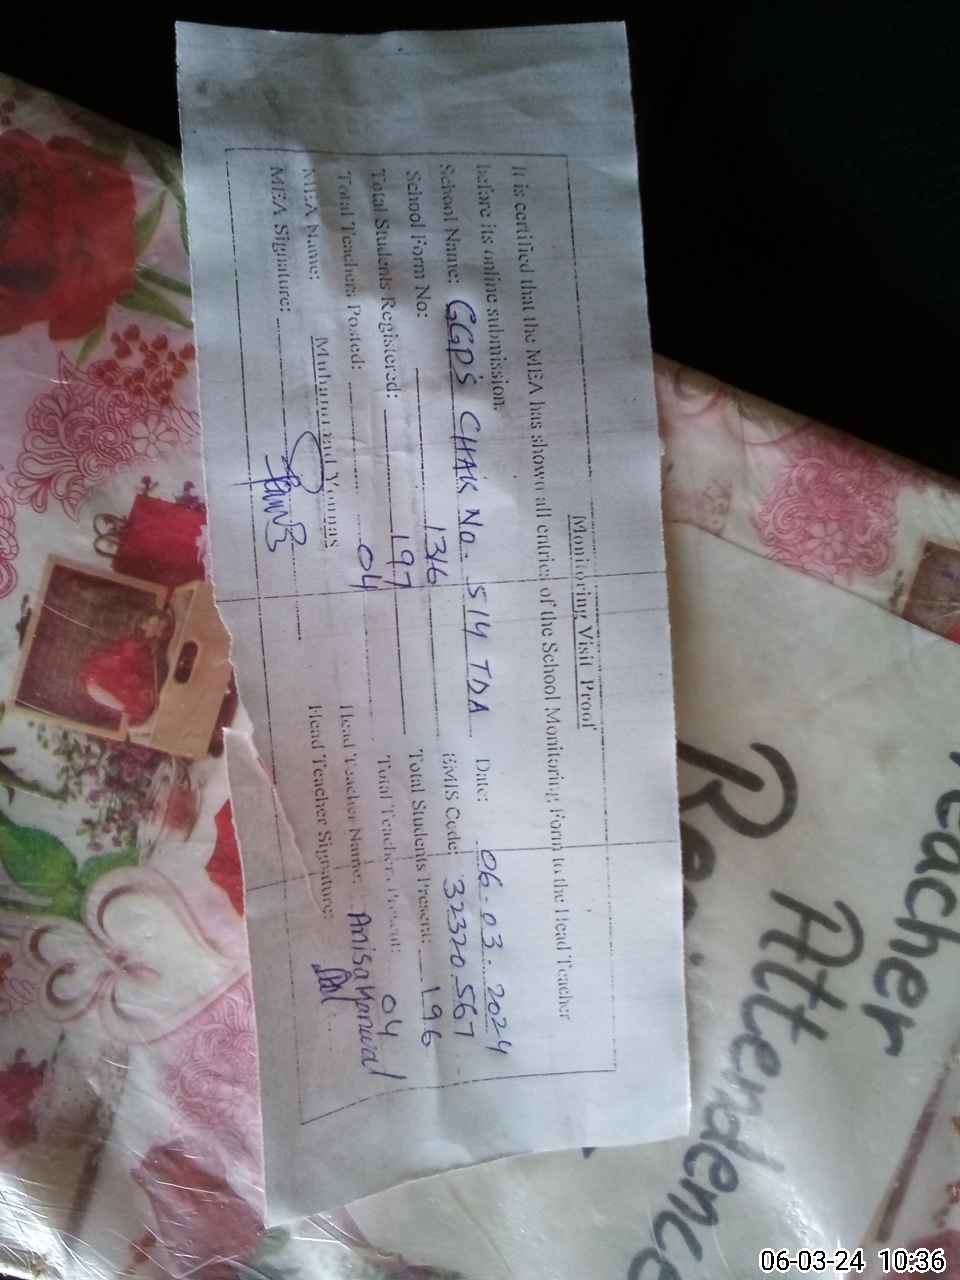 Monitoring Visit Proof
It is certified that the MEA has shown all entries of the School Monitoring Form to the Head Teacher
before its online submission.
School Name: GGPS CHAK No. 514 TDA Date: 06-03-2024
School Form No: 1316 EMIS Code: 32320567
Total Students Registered: 197 Total Students Present: 196
Total Teachers Posted: 04 Total Teachers Present: 04
MEA Name: Muhammad Younas Head Teacher Name: Anisa Kanwal
MEA Signature: Head Teacher Signature:
Teacher
Attendence
06-03-24 10:36